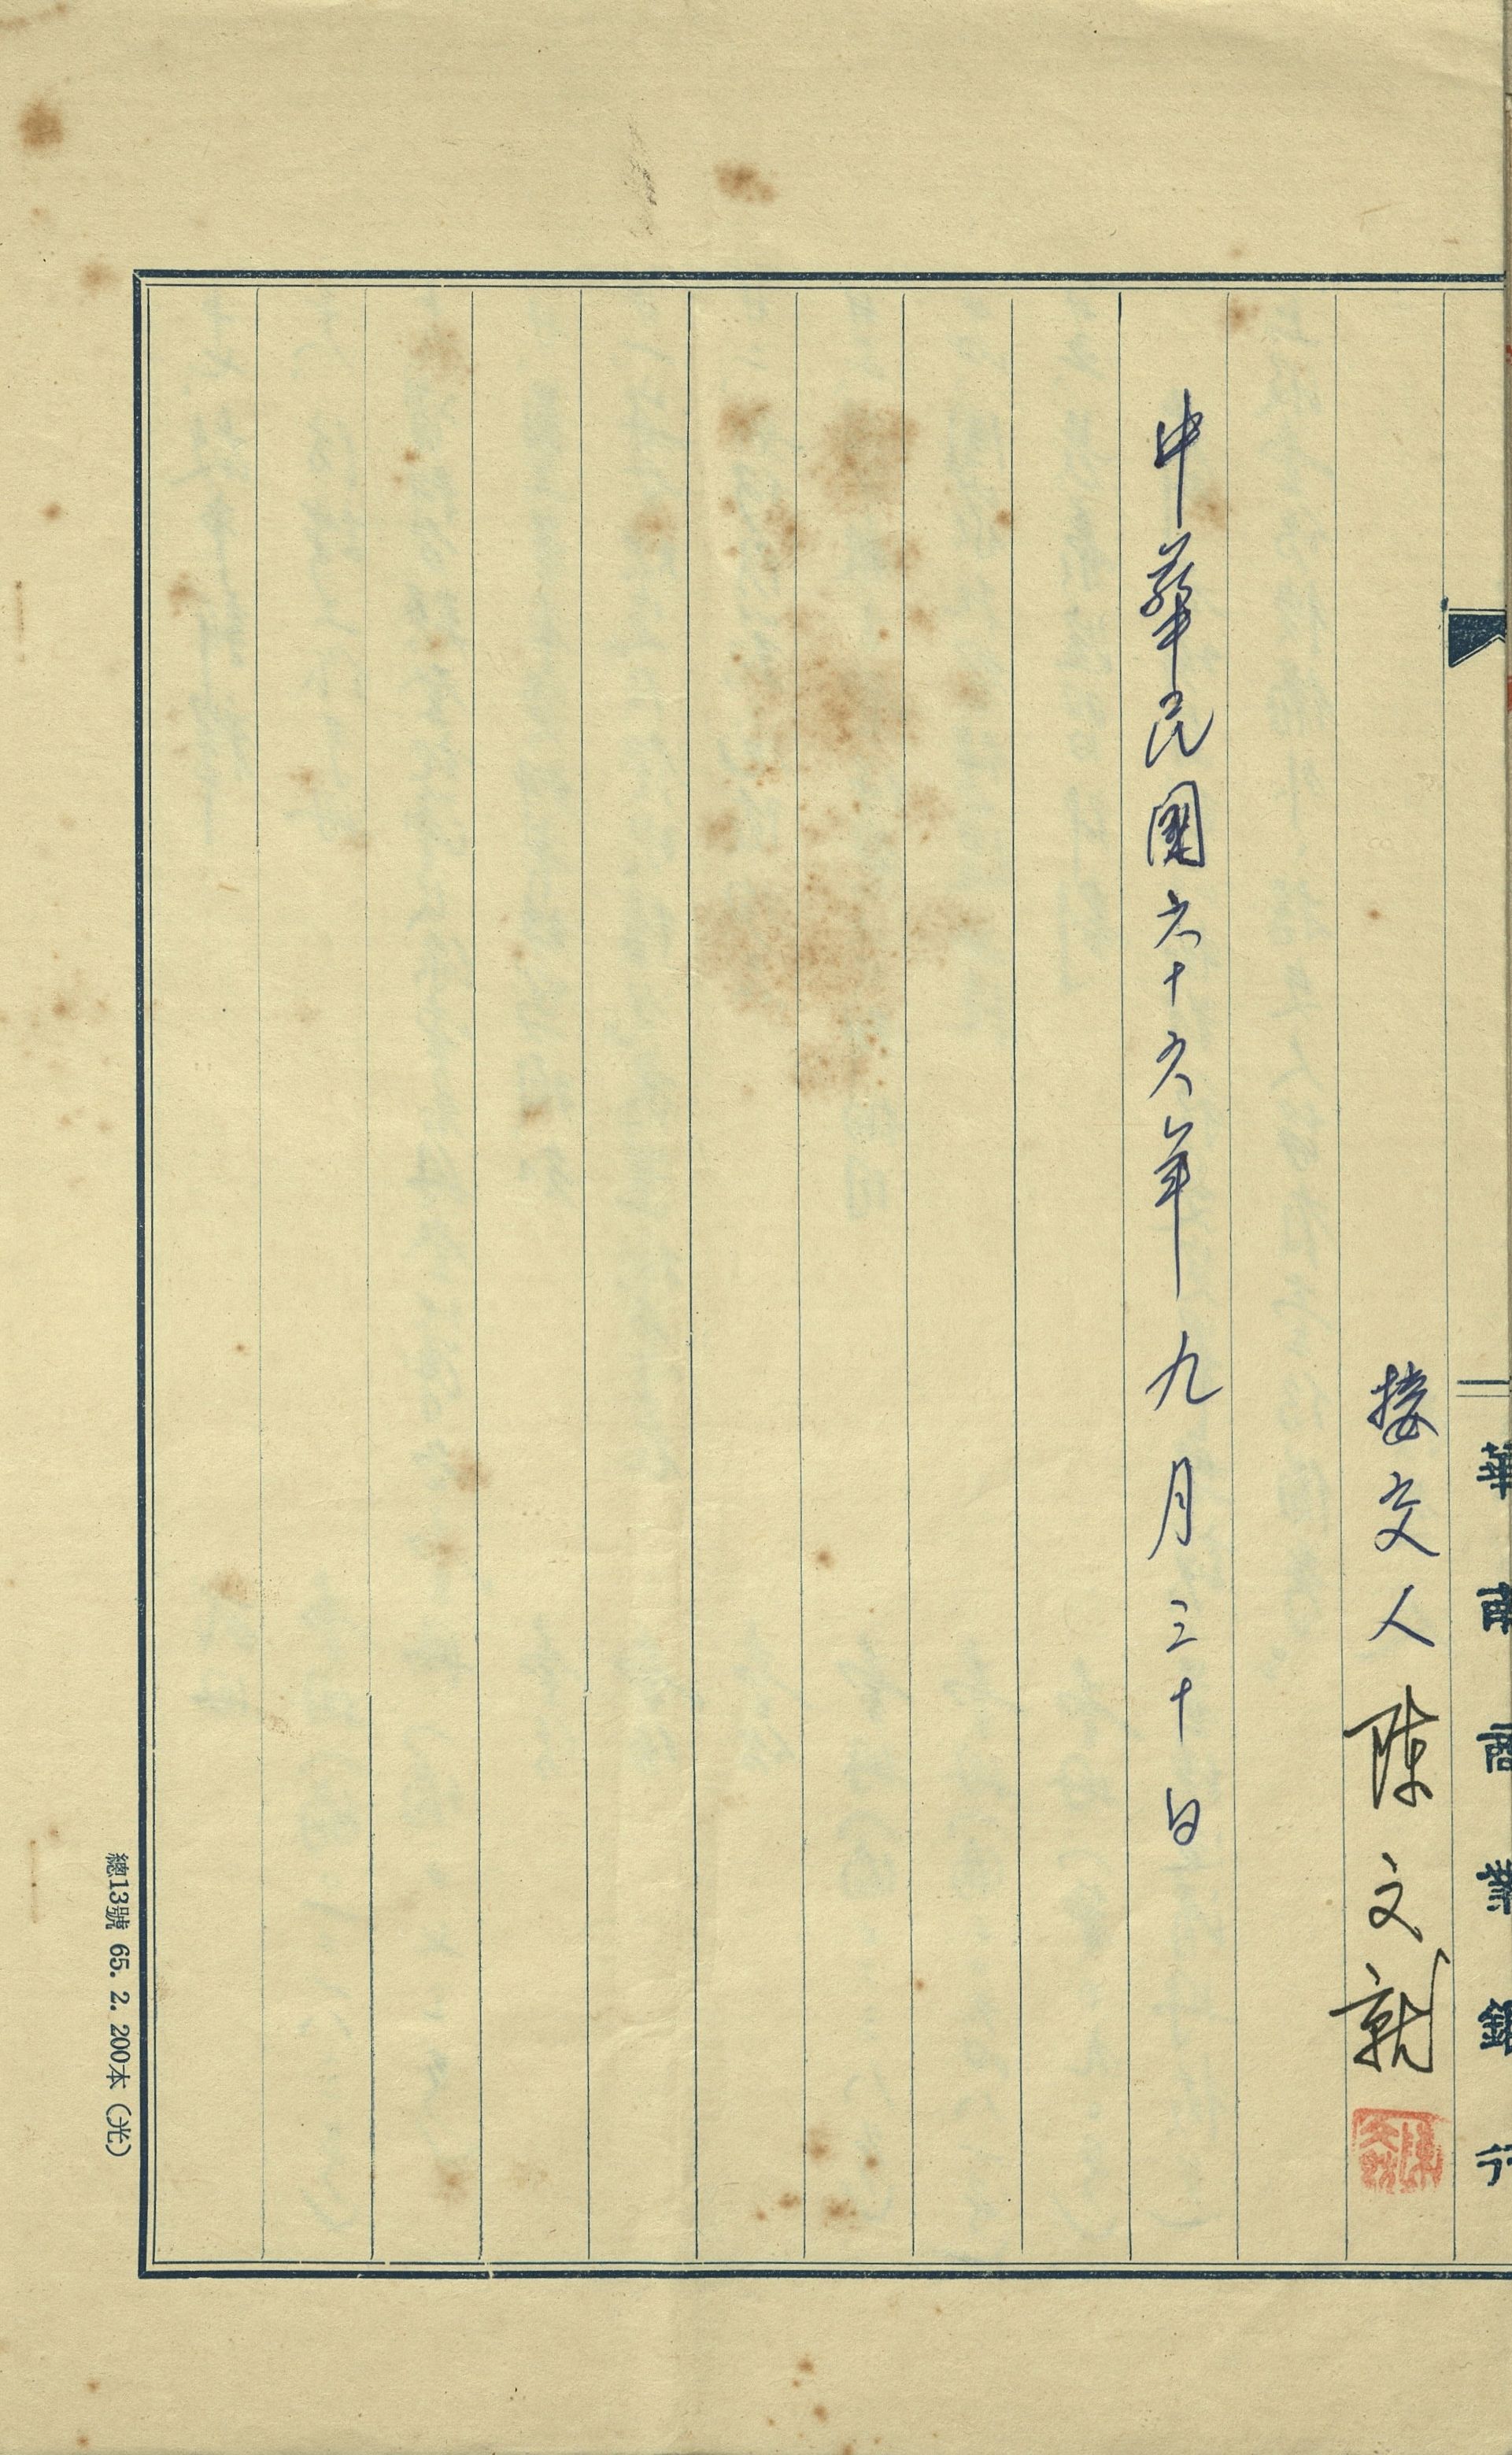 華南商業銀行
接交人 陳文
中華民國六十六年九月三十日
總13號 65. 2. 200本（光）